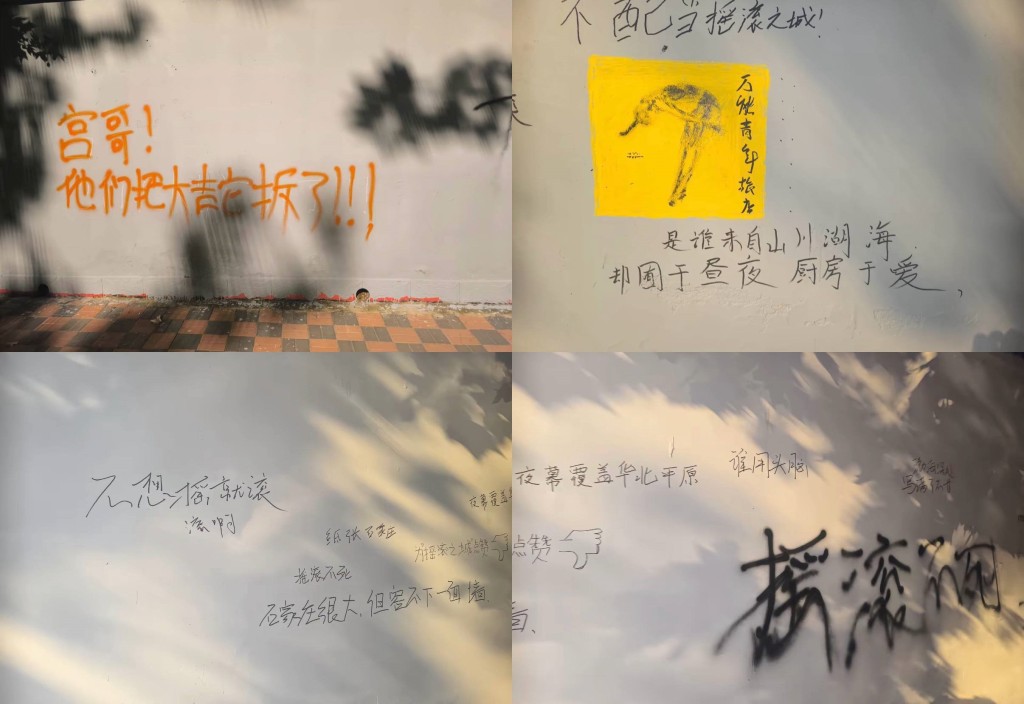 宫哥！
他们把大吉它拆了!!!
不配当摇滚之城！
万能青年旅店
是谁来自山川湖海
却圃于昼夜 厨房于爱，
不想摇，就滚
滚啊
夜幕覆盖
为摇滚之城点赞
摇滚不死
石家庄很大，但容不下一面墙。
夜幕覆盖华北平原
谁用头脑
点赞
摇滚